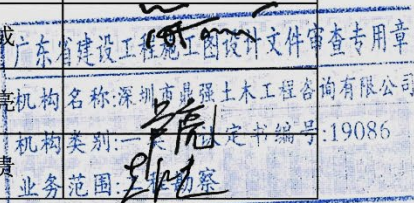 广东省建设工程施工图设计文件审查专用章
机构名称:深圳市晶强土木工程咨询有限公司
机构类别:一类 认定书编号:19086
业务范围: 勘察